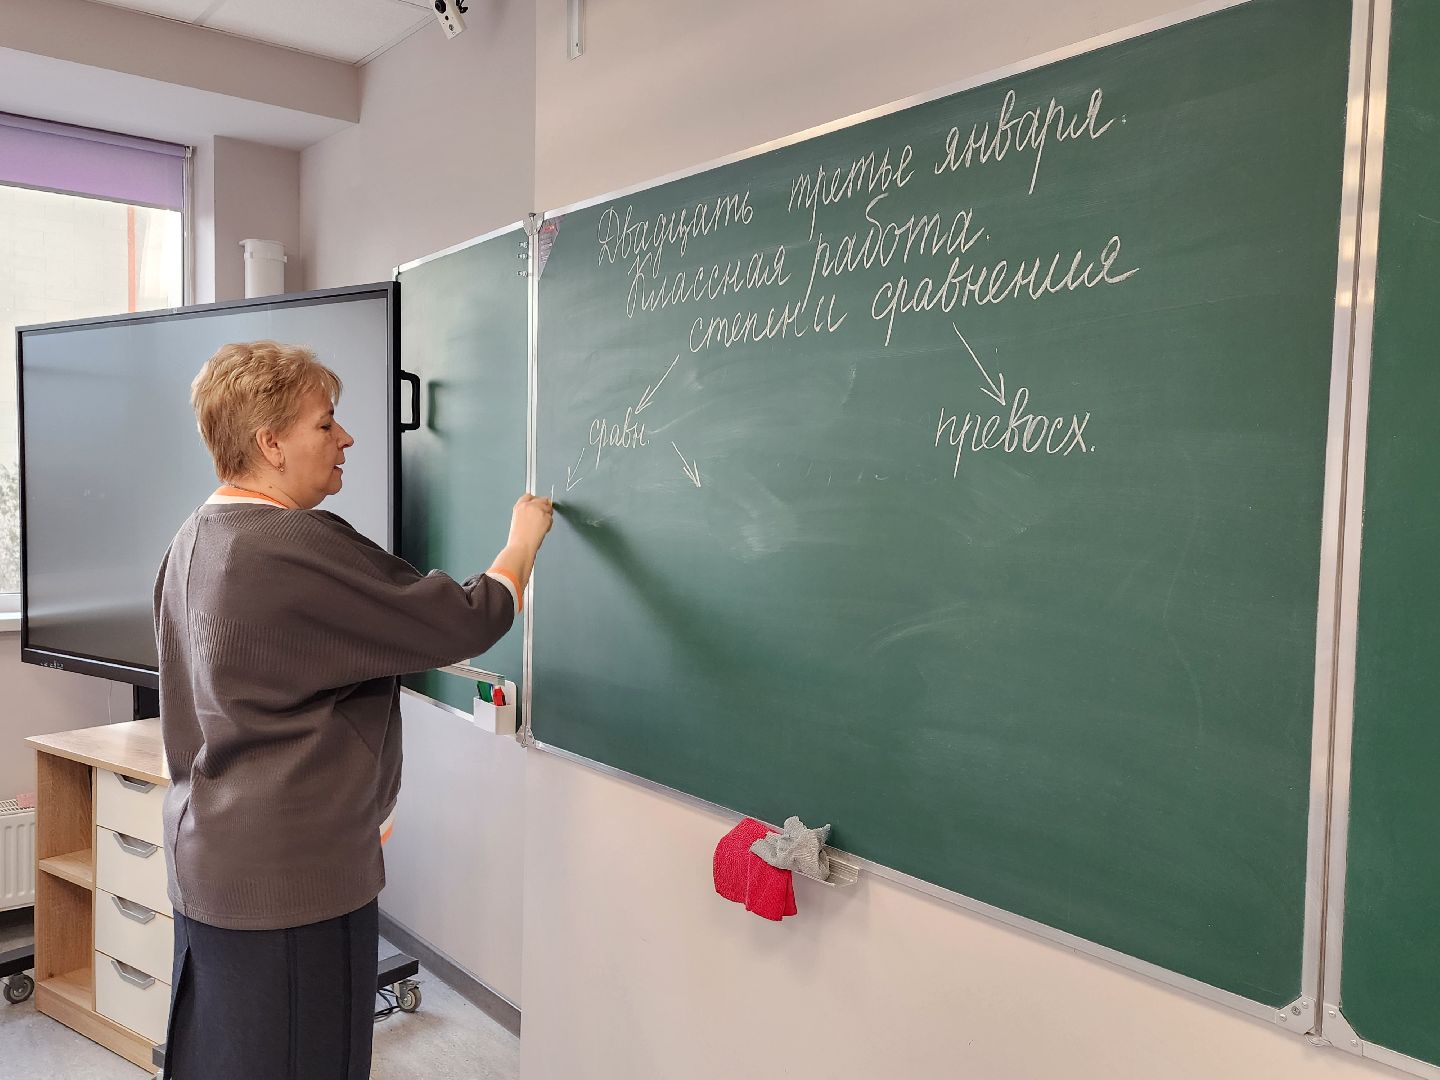 Двадцать третье января.
Классная работа.
степени сравнения
сравн.
превосх.